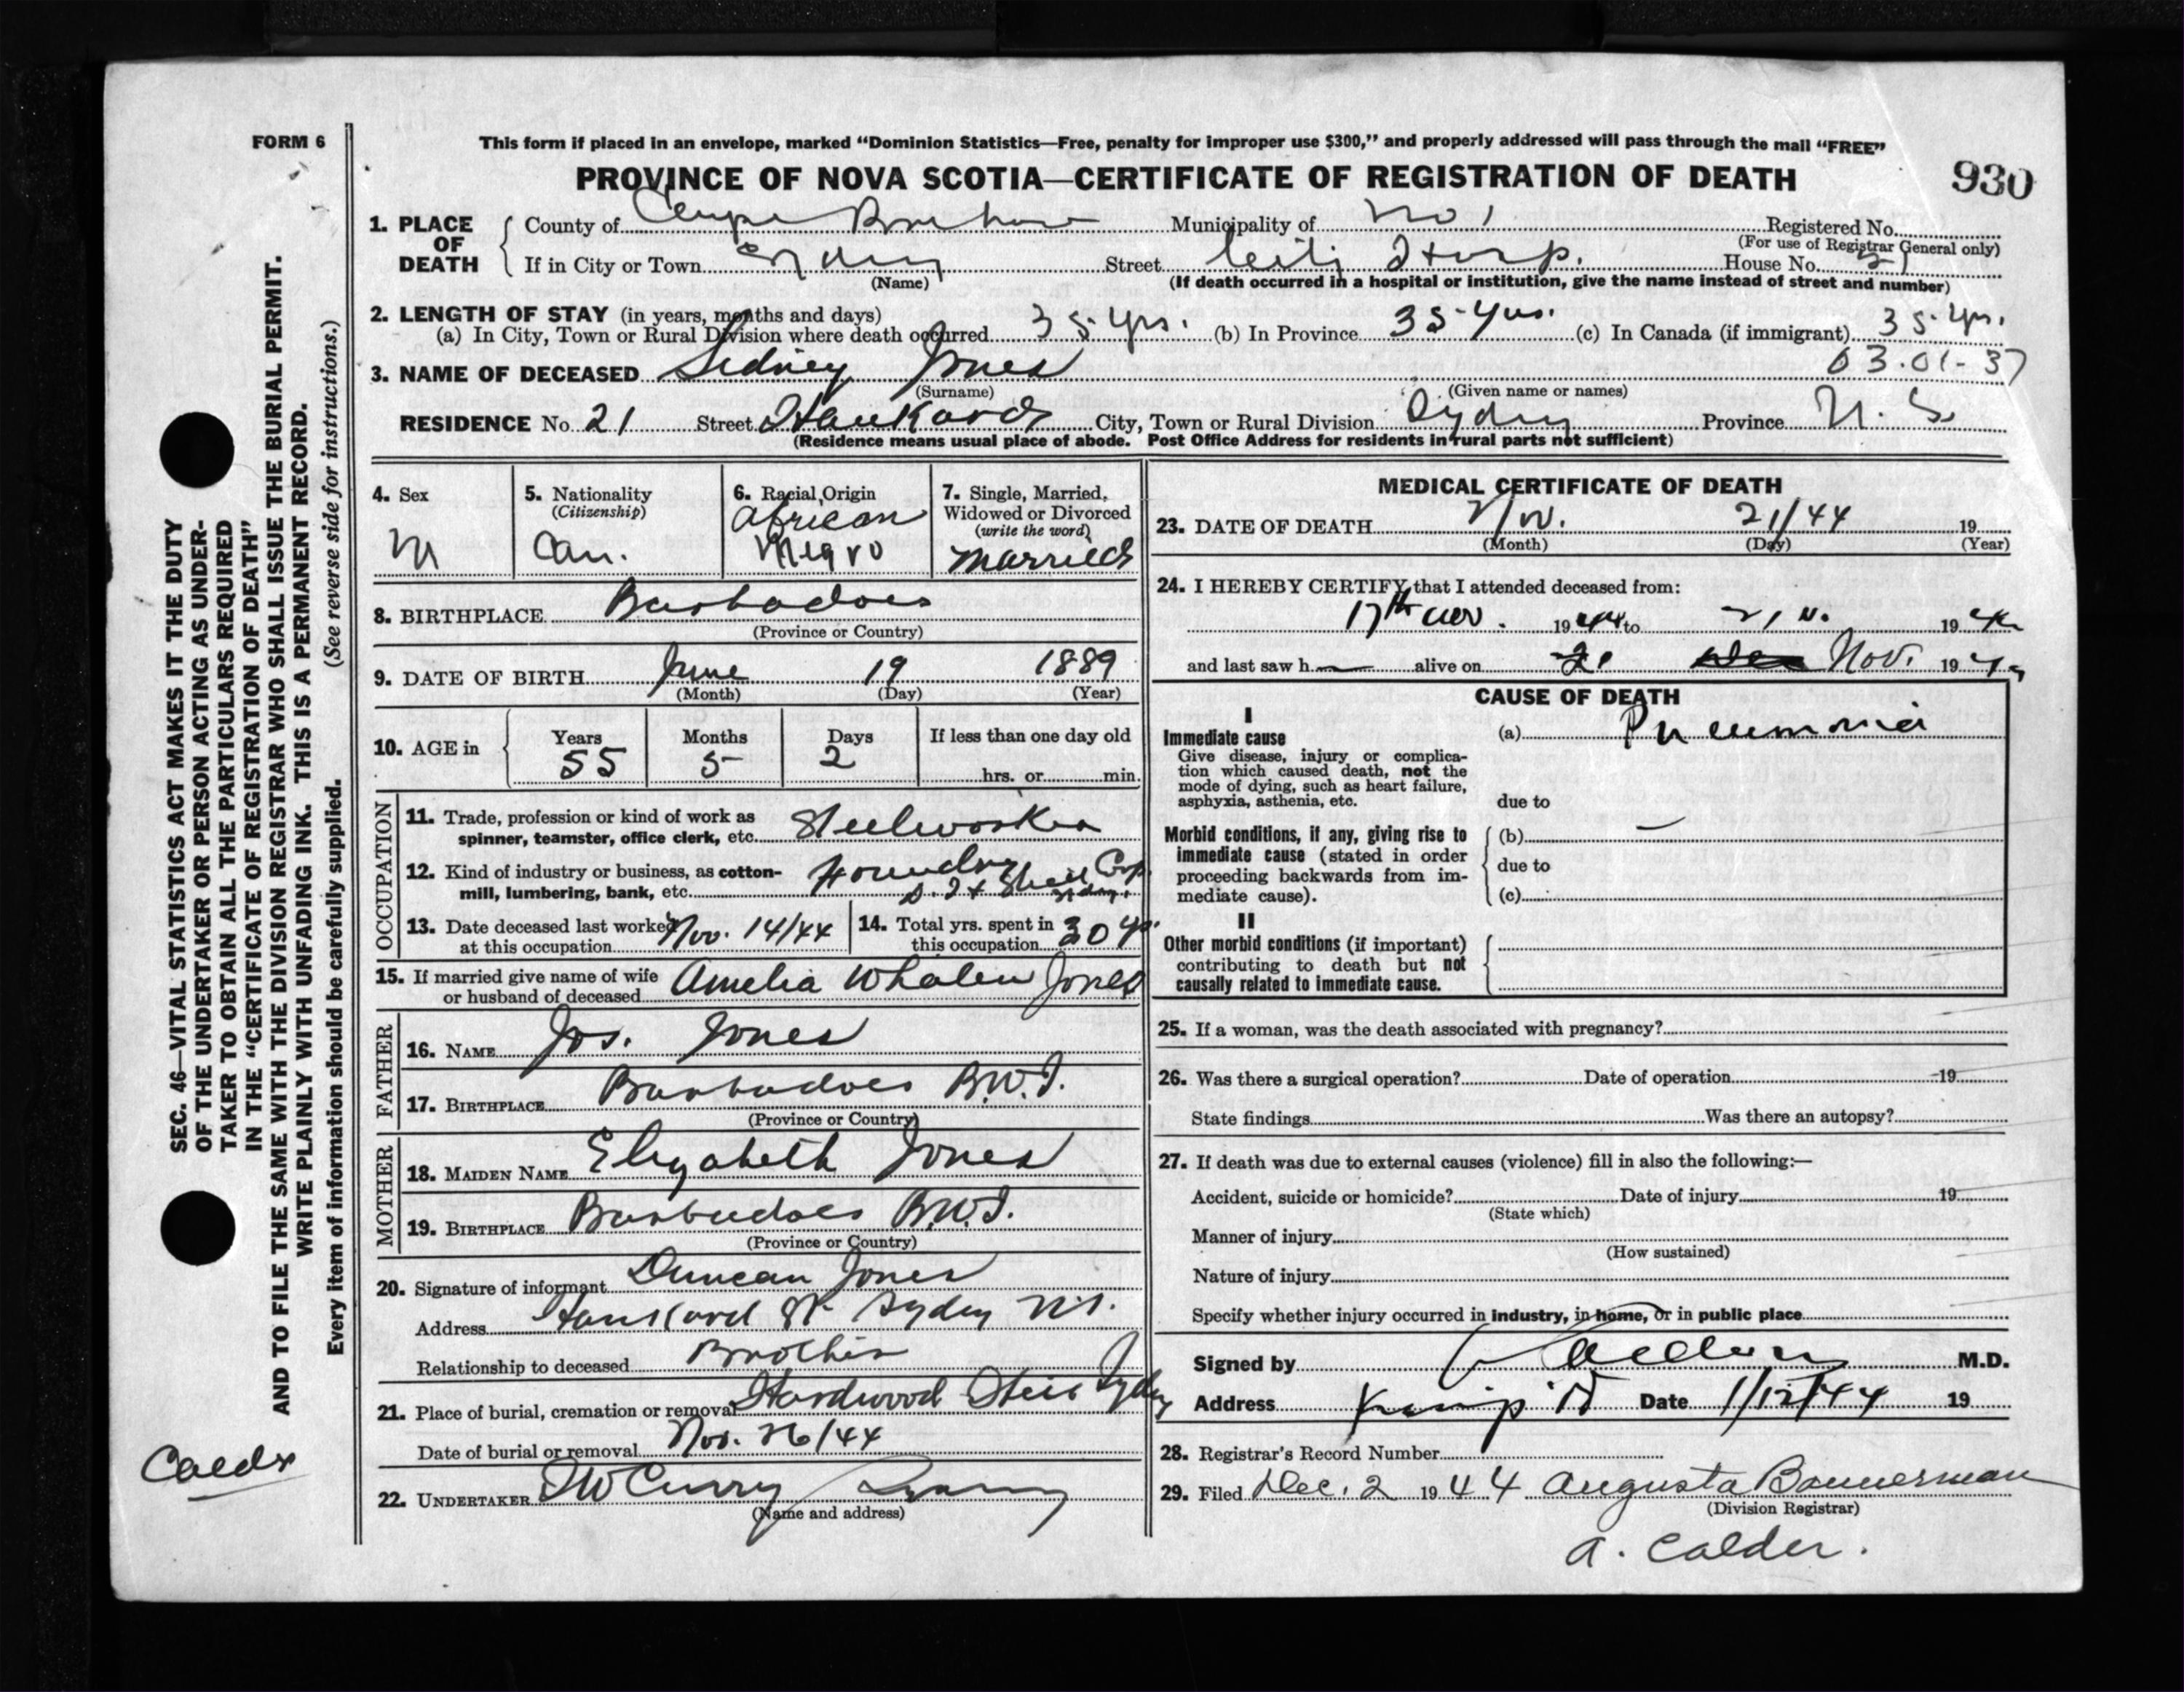 FORM 6
This form if placed in an envelope, marked “Dominion Statistics—Free, penalty for improper use $300,” and properly addressed will pass through the mail “FREE”
PROVINCE OF NOVA SCOTIA—CERTIFICATE OF REGISTRATION OF DEATH
930
1. PLACE OF DEATH
County of Cape Breton Municipality of No 1 Registered No.
(For use of Registrar General only)
If in City or Town Sydney Street City Hosp. House No.
(Name)
(If death occurred in a hospital or institution, give the name instead of street and number)
2. LENGTH OF STAY (in years, months and days)
(a) In City, Town or Rural Division where death occurred 35 yrs. (b) In Province 35 yrs. (c) In Canada (if immigrant) 35 yrs.
03.01-37
3. NAME OF DECEASED Sidney Jones
(Surname) (Given name or names)
RESIDENCE No. 21 Street Hankard City, Town or Rural Division Sydney Province N. S.
(Residence means usual place of abode. Post Office Address for residents in rural parts not sufficient)
4. Sex M
5. Nationality (Citizenship) Can.
6. Racial Origin African Negro
7. Single, Married, Widowed or Divorced (write the word) Married
8. BIRTHPLACE Barbadoes
(Province or Country)
9. DATE OF BIRTH June 19 1889
(Month) (Day) (Year)
10. AGE in Years 55 Months 5 Days 2 If less than one day old
hrs. or min.
OCCUPATION
11. Trade, profession or kind of work as spinner, teamster, office clerk, etc. Steelworker
12. Kind of industry or business, as cotton-mill, lumbering, bank, etc. Foundry Corp. Sydney
13. Date deceased last worked at this occupation Nov. 14/44
14. Total yrs. spent in this occupation 30 yr.
15. If married give name of wife or husband of deceased Amelia Whalen Jones
FATHER
16. NAME Jos. Jones
17. BIRTHPLACE Barbadoes B.W.I.
(Province or Country)
MOTHER
18. MAIDEN NAME Elizabeth Jones
19. BIRTHPLACE Barbadoes B.W.I.
(Province or Country)
20. Signature of informant Duncan Jones
Address Hankard St Sydney N.S.
Relationship to deceased Brother
21. Place of burial, cremation or removal Hardwood Sydney
Date of burial or removal Nov. 26/44
22. UNDERTAKER Curry
(Name and address)
MEDICAL CERTIFICATE OF DEATH
23. DATE OF DEATH Nov. 21/44 19
(Month) (Day) (Year)
24. I HEREBY CERTIFY that I attended deceased from:
17th Nov. 1944 to 21 N. 1944
and last saw h alive on 21 Nov. 1944
CAUSE OF DEATH
I
Immediate cause (a) Pneumonia
Give disease, injury or complication which caused death, not the mode of dying, such as heart failure, asphyxia, asthenia, etc.
due to
Morbid conditions, if any, giving rise to immediate cause (stated in order proceeding backwards from immediate cause).
(b) —
due to
(c)
II
Other morbid conditions (if important) contributing to death but not causally related to immediate cause.
25. If a woman, was the death associated with pregnancy?
26. Was there a surgical operation? Date of operation 19
State findings Was there an autopsy?
27. If death was due to external causes (violence) fill in also the following:—
Accident, suicide or homicide? Date of injury 19
(State which)
Manner of injury
(How sustained)
Nature of injury
Specify whether injury occurred in industry, in home, or in public place
Signed by Calder M.D.
Address Date 1/12/44 19
28. Registrar's Record Number
29. Filed Dec. 2 1944 Augusta Bannerman
(Division Registrar)
A. Calder.
SEC. 46—VITAL STATISTICS ACT MAKES IT THE DUTY
OF THE UNDERTAKER OR PERSON ACTING AS UNDER-
TAKER TO OBTAIN ALL THE PARTICULARS REQUIRED
IN THE “CERTIFICATE OF REGISTRATION OF DEATH”
AND TO FILE THE SAME WITH THE DIVISION REGISTRAR WHO SHALL ISSUE THE BURIAL PERMIT.
WRITE PLAINLY WITH UNFADING INK. THIS IS A PERMANENT RECORD.
Every item of information should be carefully supplied. (See reverse side for instructions.)